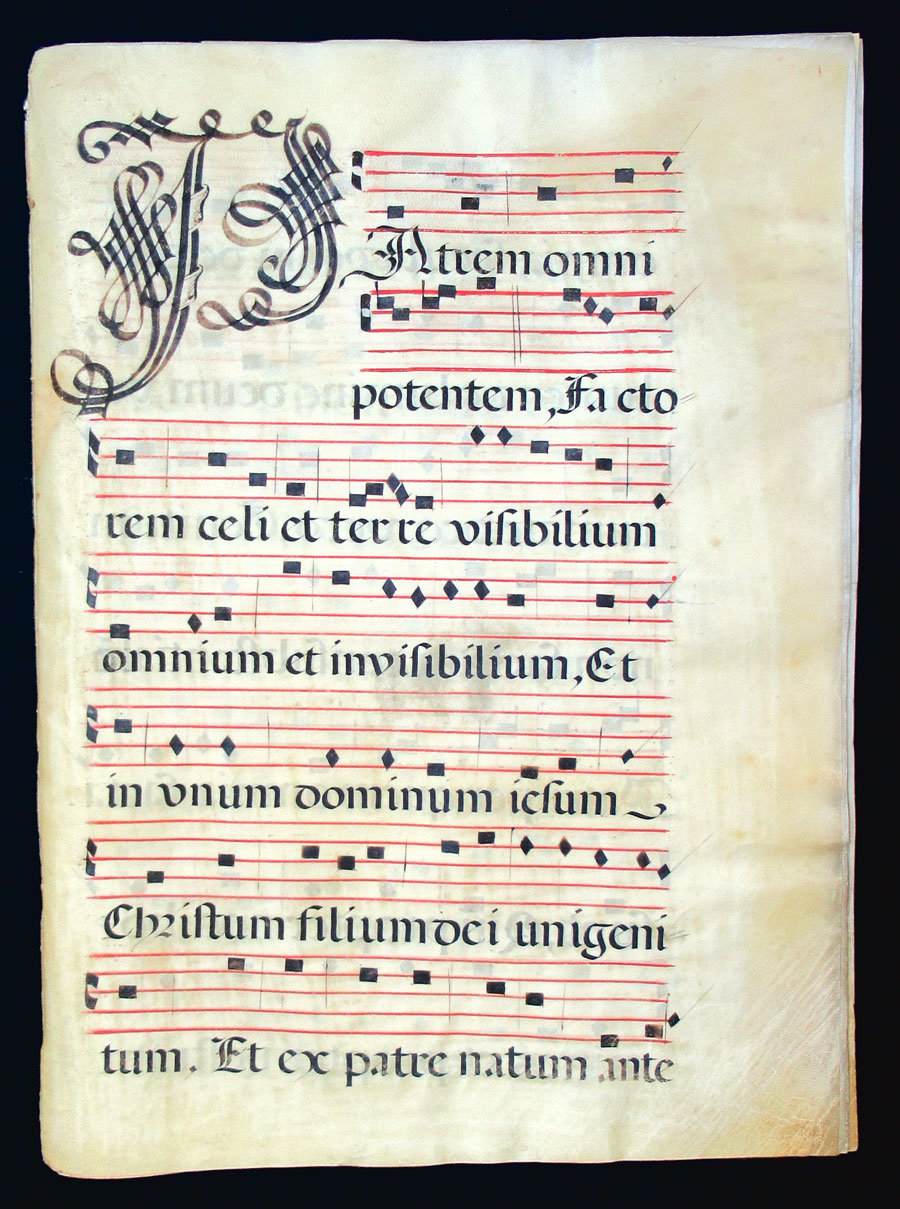 PAtrem omni
potentem, Facto
rem celi et terre viſibilium
omnium et inviſibilium, Et
in vnum dominum ieſum
Chriſtum filium dei unigeni
tum. Et ex patre natum ante